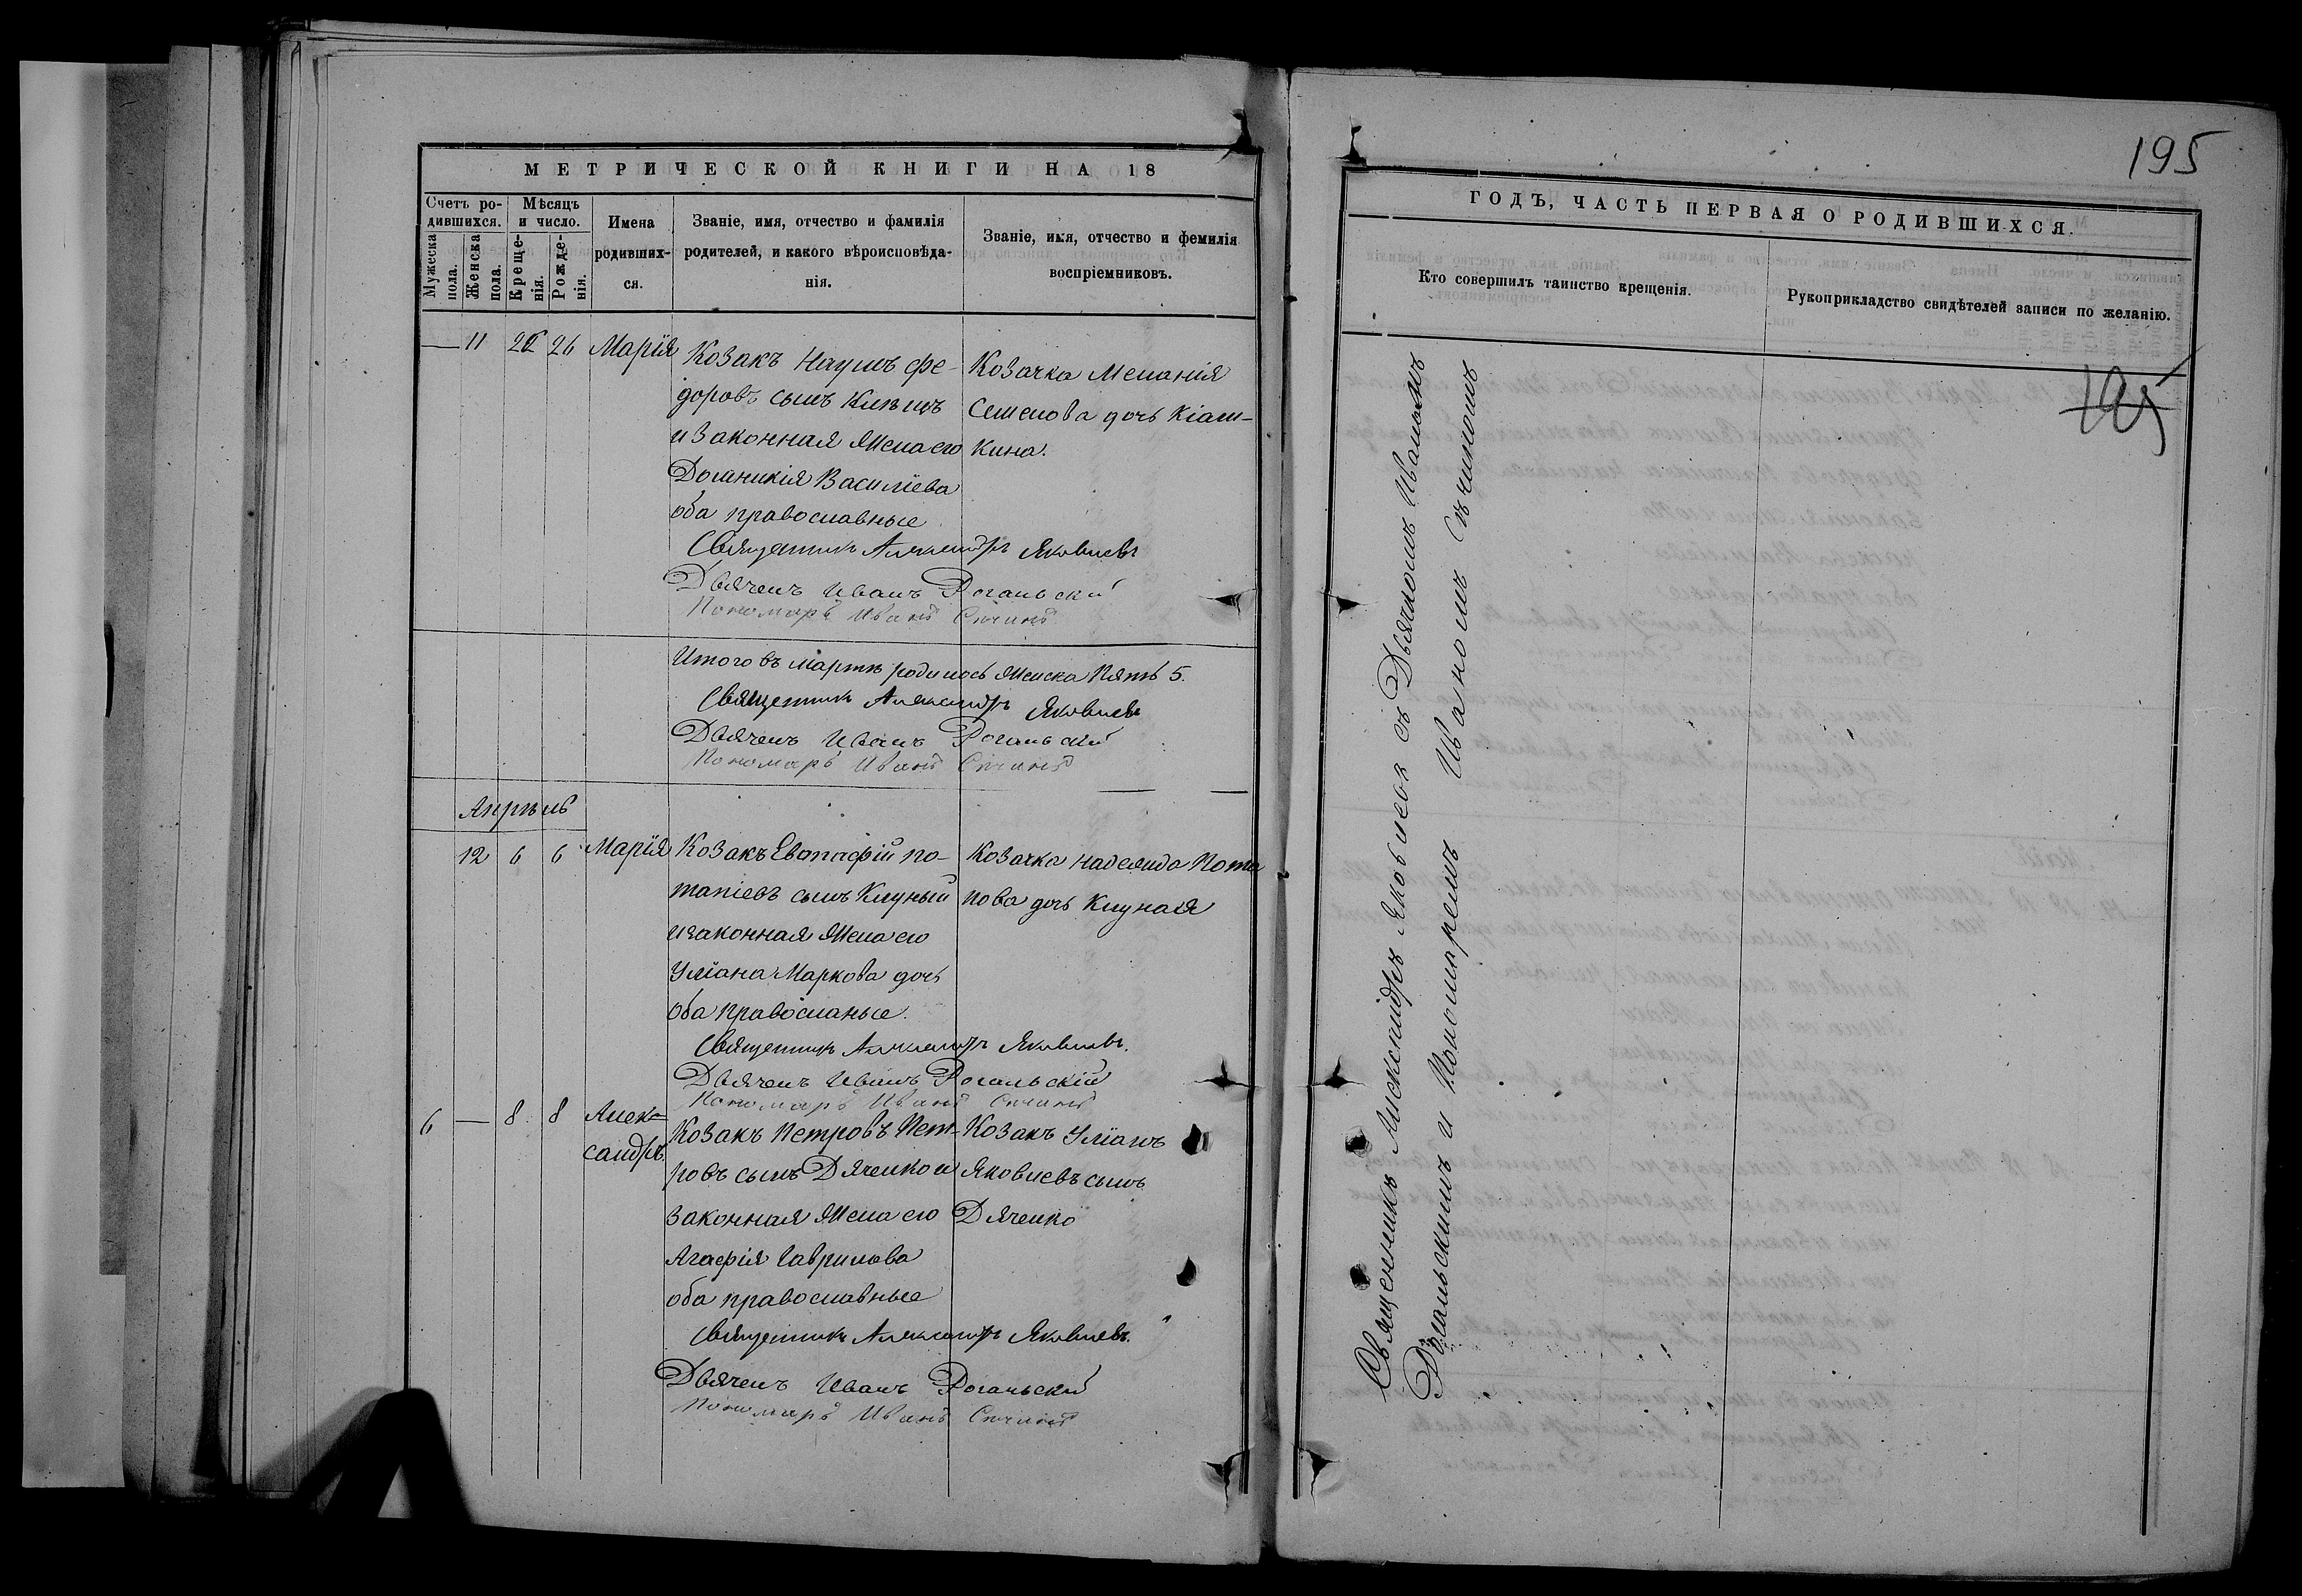 МЕТРИЧЕСКОЙ КНИГИ НА 18
Счетъ ро-
дившихся.
Мѣсяцъ
и число.
Мужеска
пола.
Женска
пола.
Креще-
нія.
Рожде-
нія.
Имена
родивших-
ся.
Званіе, имя, отчество и фамилія
родителей, и какого вѣроисповѣда-
нія.
Званіе, имя, отчество и фемилія
воспріемниковъ.
— 11 26 26 Марія
Козакъ Наумъ Фе-
доровъ сынъ
и законная жена его
Домникія Василіева
оба православные
Козачка Меланія
Семенова дочь Кіаш-
кина.
Священникъ Александръ Яковлевъ
Дьячекъ Иванъ Рогальскій
Пономарь Иванъ
Итого въ мартѣ родилось женска пять 5.
Священникъ Александръ Яковлевъ
Дьячекъ Иванъ Рогальскій
Пономарь Иванъ
Апрѣль
12 6 6 Марія
Козакъ Евстафій По-
тапіевъ сынъ Клуный
и законная жена его
Уліана Маркова дочь
оба православные.
Козачка Надежда Пота
пова дочь Клуная
Священникъ Александръ Яковлевъ.
Дьячекъ Иванъ Рогальскій
Пономарь Иванъ
6 — 8 8 Алек-
сандръ.
Козакъ Петровъ Пет-
ровъ сынъ Дяченко и
законная жена его
Агафія Гаврилова
оба православные
Козакъ Уліанъ
Яковлевъ сынъ
Дяченко
Священникъ Александръ Яковлевъ.
Дьячекъ Иванъ Рогальскій
Пономарь Иванъ
195
ГОДЪ, ЧАСТЬ ПЕРВАЯ О РОДИВШИХСЯ.
Кто совершилъ таинство крещенія.
Рукоприкладство свидѣтелей записи по желанію.
195
Священникъ Александръ Яковлевъ съ Дьячкомъ Иваномъ
Рогальскимъ и Пономаремъ Иваномъ